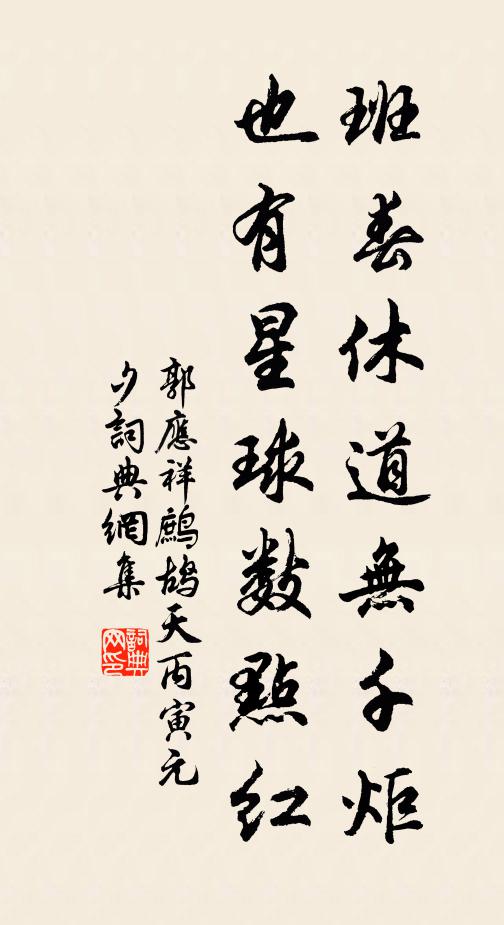 班春休道無千炬
也有星球數點紅
郭應祥鷓鴣天丙寅元
夕詞典網集
詞典
网印